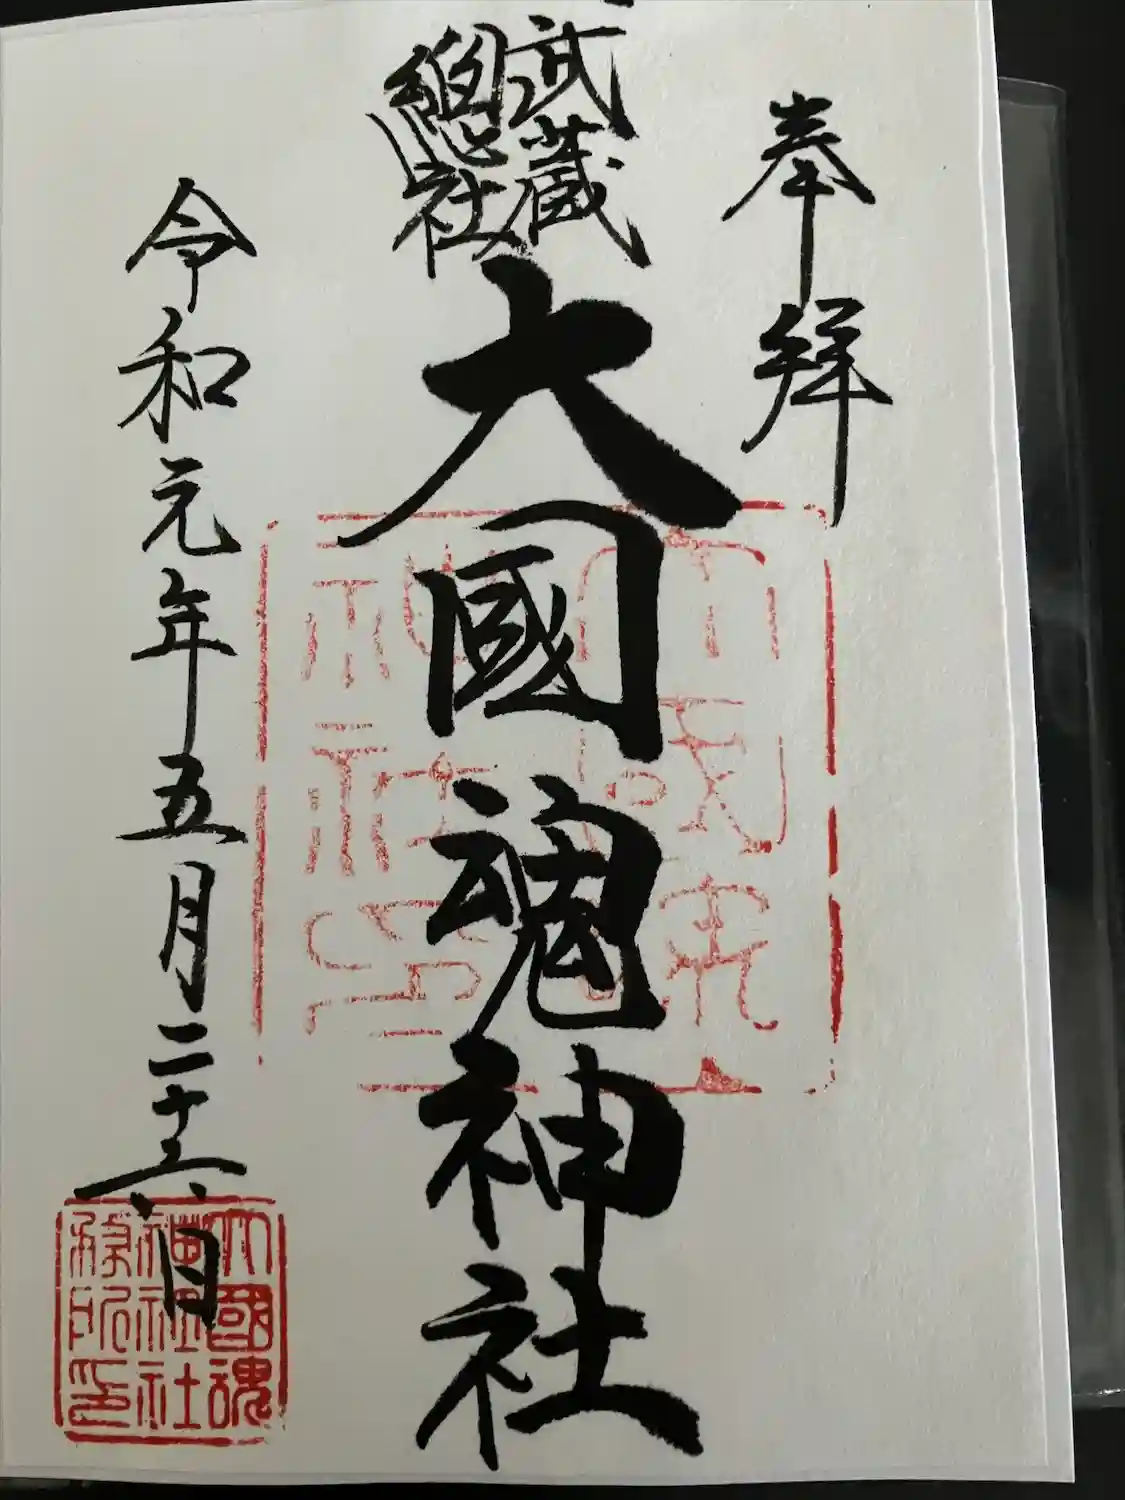 奉拝
武蔵
總社
大國魂神社
令和元年五月二十六日
大國魂
神社社
務所印